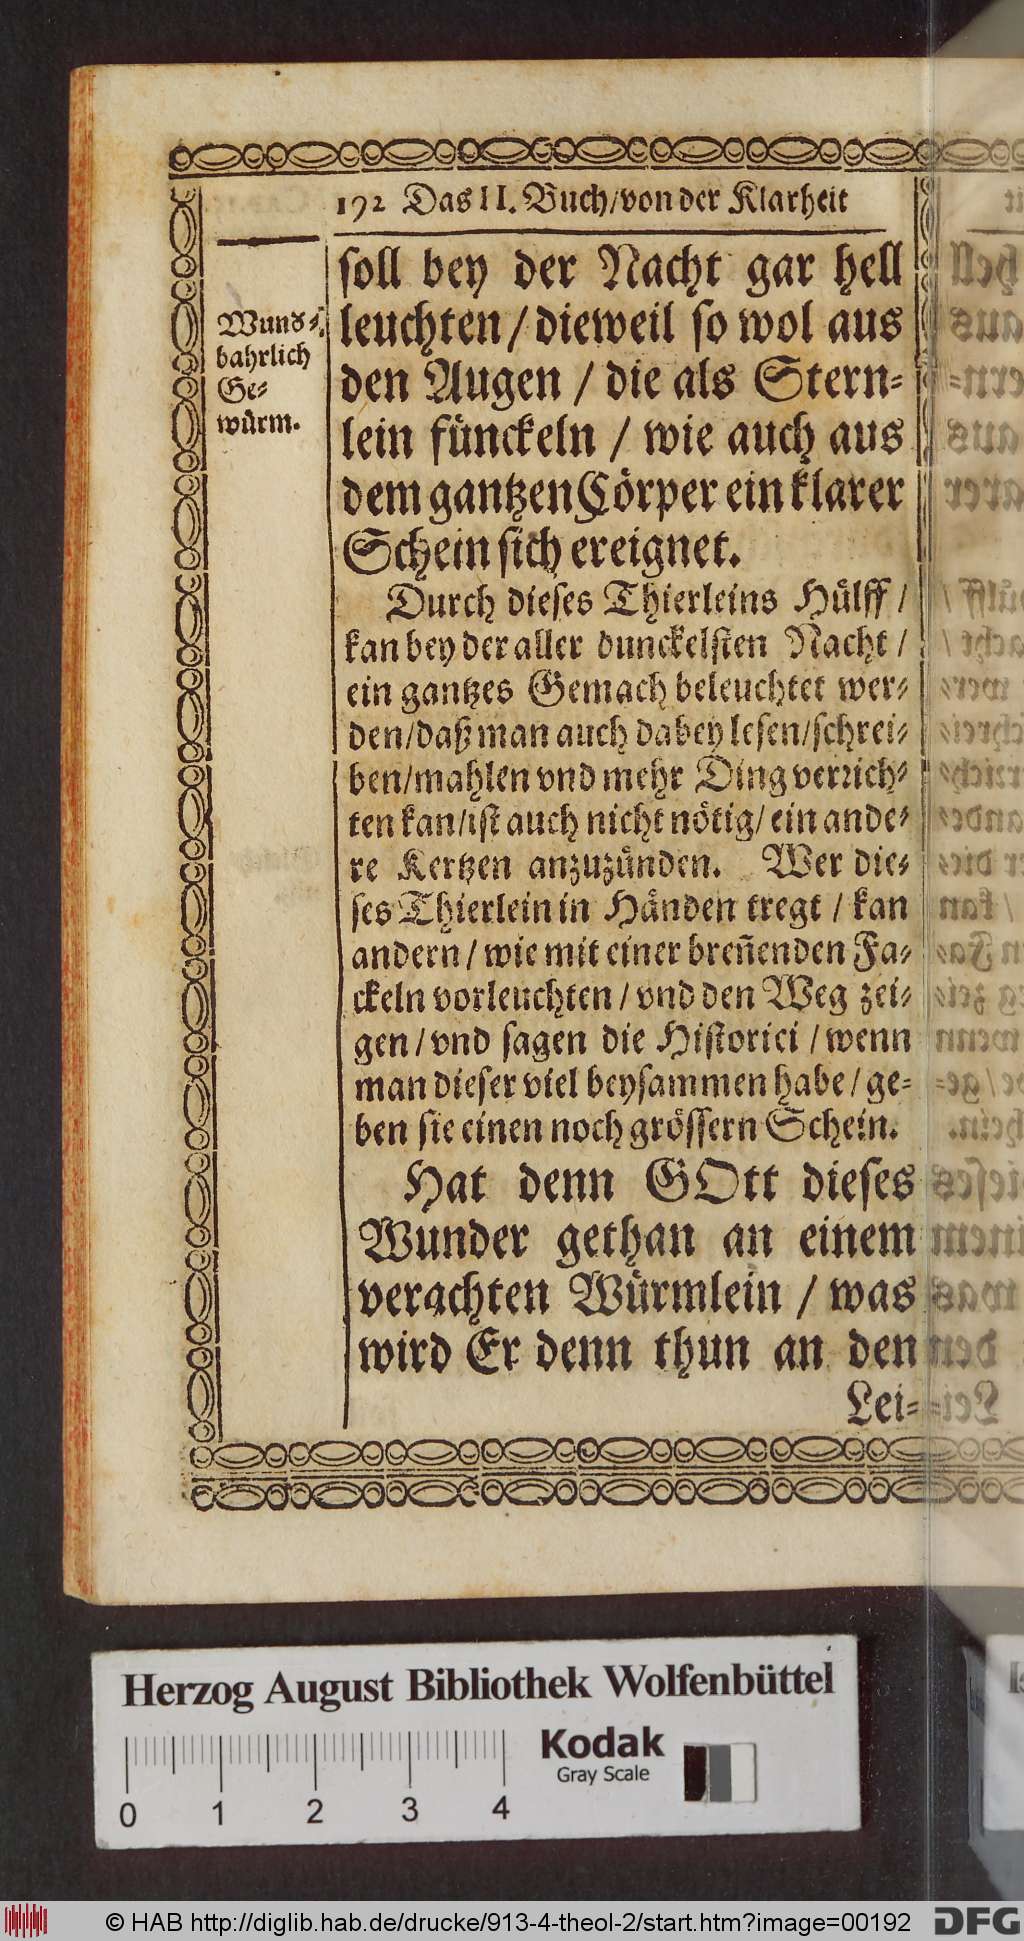 192 Das II. Buch/von der Klarheit
Wund⸗
bahrlich
Ge⸗
würm.
soll bey der Nacht gar hell
leuchten / dieweil so wol aus
den Augen / die als Stern⸗
lein fünckeln / wie auch aus
dem gantzen Cörper ein klarer
Schein sich ereignet.
Durch dieses Thierleins Hülff /
kan bey der aller dunckelsten Nacht /
ein gantzes Gemach beleuchtet wer⸗
den/daß man auch dabey lesen/schrei⸗
ben/mahlen vnd mehr Ding verrich⸗
ten kan/ist auch nicht nötig/ ein ande⸗
re Kertzen anzuzünden. Wer die⸗
ses Thierlein in Händen tregt / kan
andern / wie mit einer breñenden Fa⸗
ckeln vorleuchten / vnd den Weg zei⸗
gen / vnd sagen die Historici / wenn
man dieser viel beysammen habe / ge⸗
ben sie einen noch grössern Schein.
Hat denn GOtt dieses
Wunder gethan an einem
verachten Würmlein / was
wird Er denn thun an den
Lei⸗
Herzog August Bibliothek Wolfenbüttel
Kodak
Gray Scale
0 1 2 3 4
© HAB http://diglib.hab.de/drucke/913-4-theol-2/start.htm?image=00192
DFG